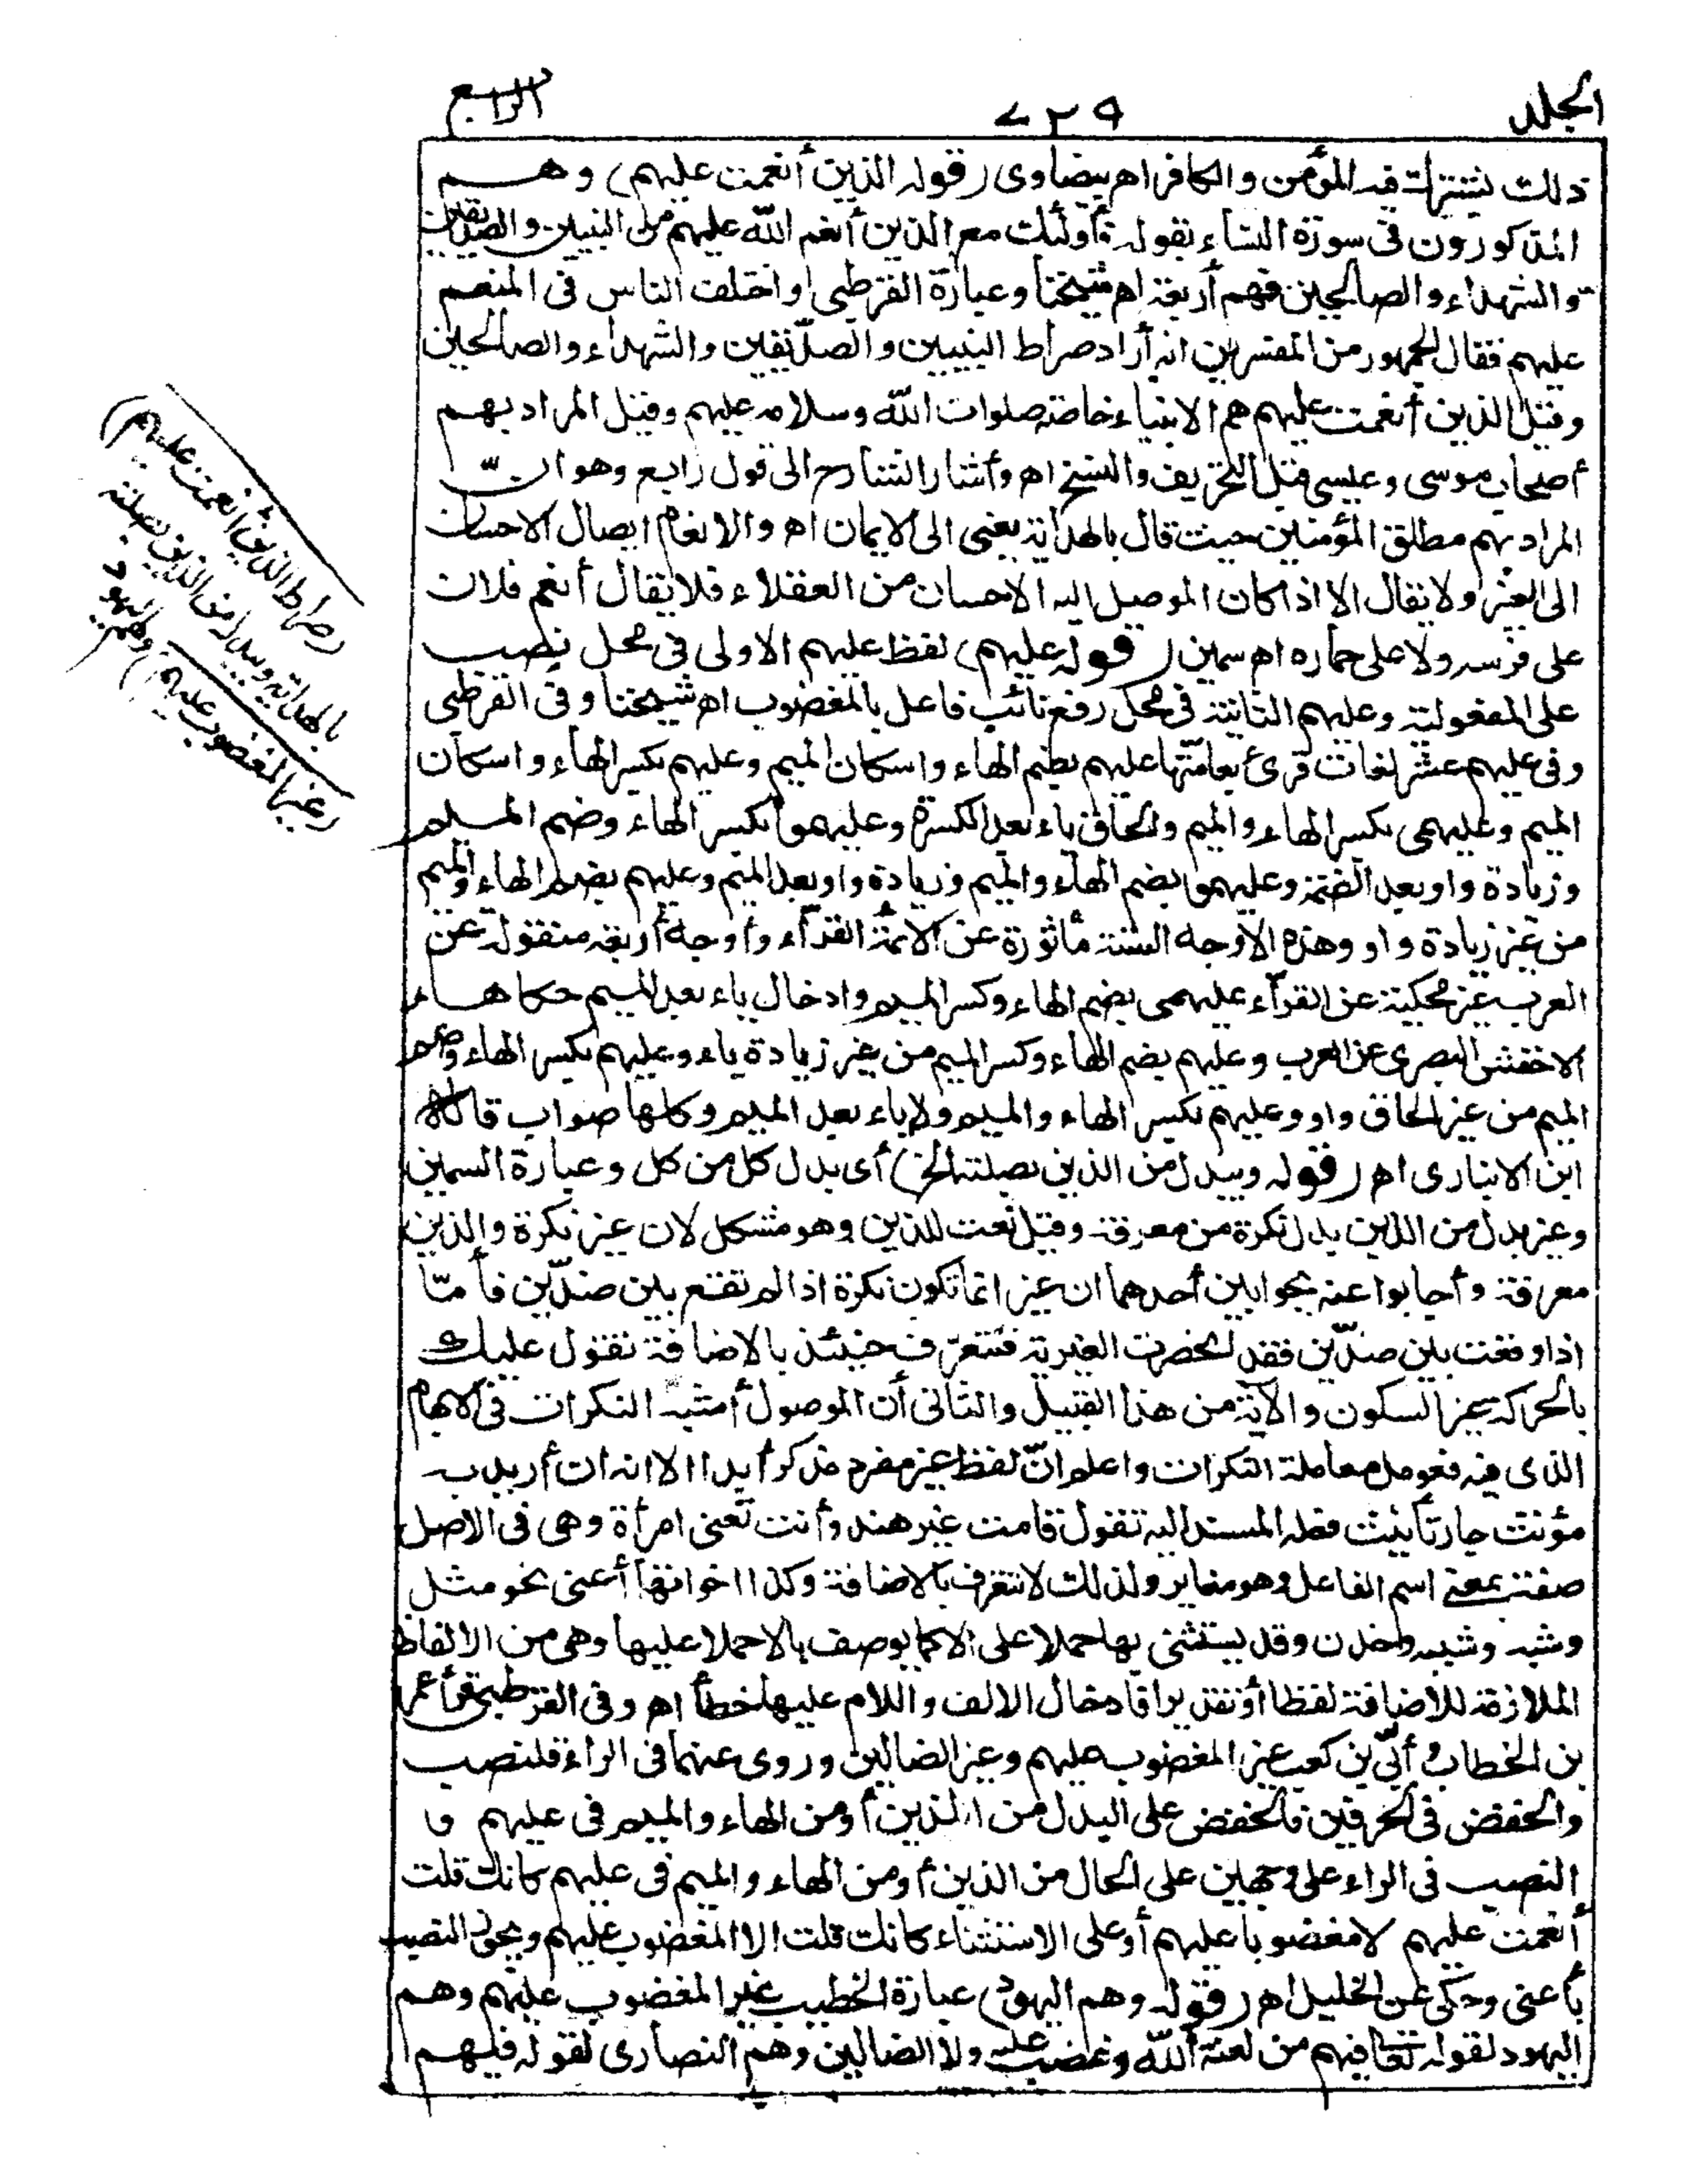 الجلد ٧٢٩ الرابع
ذلك يشترك فيه المؤمن والكافر اه بيضاوى (قوله الذين أنعمت عليهم) وهم
المذكورون فى سورة النساء بقوله فأولئك مع الذين أنعم الله عليهم من النبيين والصديقين
والشهداء والصالحين فهم أربعة اه شيخنا وعبارة القرطبى واختلف الناس فى المنعم
عليهم فقال الجمهور من المفسرين انه أراد صراط النبيين والصدّيقين والشهداء والصالحين
وقيل الذين أنعمت عليهم هم الانبياء خاصة صلوات الله وسلامه عليهم وقيل المراد بهم
أصحاب موسى وعيسى قبل التحريف والنسخ اه وأشار الشارح الى قول رابع وهو انّ
المراد بهم مطلق المؤمنين حيث قال بالهداية يعنى الى الايمان اه والانعام ايصال الاحسان
الى الغير ولا يقال الا اذا كان الموصل اليه الاحسان من العقلاء فلا يقال أنعم فلان
على فرسه ولا على حماره اه سمين (قوله عليهم) لفظ عليهم الاولى فى محل نصب
على المفعولية وعليهم الثانية فى محل رفع نائب فاعل بالمغضوب اه شيخنا وفى القرطبى
وفى عليهم عشر لغات قرئ بعامّتها عليهم بضم الهاء واسكان الميم وعليهم بكسر الهاء واسكان
الميم وعليهمى بكسر الهاء والميم والحاق ياء بعد الكسرة وعليهموا بكسر الهاء وضم الميم
وزيادة واو بعد الضمة وعليهموا بضم الهاء والميم وزيادة واو بعد الميم وعليهم بضم الهاء والميم
من غير زيادة واو وهذه الاوجه الستة مأثورة عن الائمة القرّاء وأوجه أربعة منقولة عن
العرب غير محكية عن القرّاء عليهمى بضم الهاء وكسر الميم وادخال ياء بعد الميم حكاها
الاخفش البصرى عن العرب وعليهم بضم الهاء وكسر الميم من غير زيادة ياء وعليهم بكسر الهاء وضم
الميم من غير الحاق واو وعليهم بكسر الهاء والميم ولا ياء بعد الميم وكلها صواب قاله
ابن الانبارى اه (قوله ويبدل من الذين بصلته الخ) أى بدل كل من كل وعبارة السمين
وغير بدل من الذين بدل نكرة من معرفة وقيل نعت للذين وهو مشكل لان غير نكرة والذين
معرفة وأجابوا عنه بجوابين أحدهما ان غير انما تكون نكرة اذا لم تقع بين ضدّين فأمّا
اذا وقعت بين ضدّين فقد انحصرت الغيرية فتتعرّف حينئذ بالاضافة تقول عليك
بالحركة غير السكون والآية من هذا القبيل والثانى أن الموصول أشبه النكرات فى الابهام
الذى فيه فعومل معاملة النكرات واعلم انّ لفظ غير مفرد مذكر أبدا الا انه ان أريد به
مؤنث جاز تأنيث فعله المسند اليه تقول قامت غير هند وأنت تعنى امرأة وهى فى الاصل
صفة بمعنى اسم الفاعل وهو مغاير ولذلك لا تتعرف بالاضافة وكذا اخواتها أعنى نحو مثل
وشبه وشبيه وخدن وقد يستثنى بها حملا على الا كما يوصف بالا حملا عليها وهى من الالفاظ
الملازمة للاضافة لفظا أو تقديرا فادخال الالف واللام عليها خطأ اه وفى القرطبى قرأ عمر
بن الخطاب وأبىّ بن كعب غير المغضوب عليهم وغير الضالين وروى عنهما فى الراء النصب
والخفض فى الحرفين فالخفض على البدل من الذين أو من الهاء والميم فى عليهم و
النصب فى الراء على وجهين على الحال من الذين أو من الهاء والميم فى عليهم كانك قلت
أنعمت عليهم لا مغضوبا عليهم أو على الاستثناء كانك قلت الا المغضوب عليهم ويجوز النصب
بأعنى وحكى عن الخليل اه (قوله وهم اليهود) عبارة الخطيب غير المغضوب عليهم وهم
اليهود لقوله تعالى فيهم من لعنه الله وغضب عليه ولا الضالين وهم النصارى لقوله فيهم
(صراط الذين أنعمت عليهم)
بالهداية ويبدل من الذين بصلته
(غير المغضوب عليهم) وهم اليهود